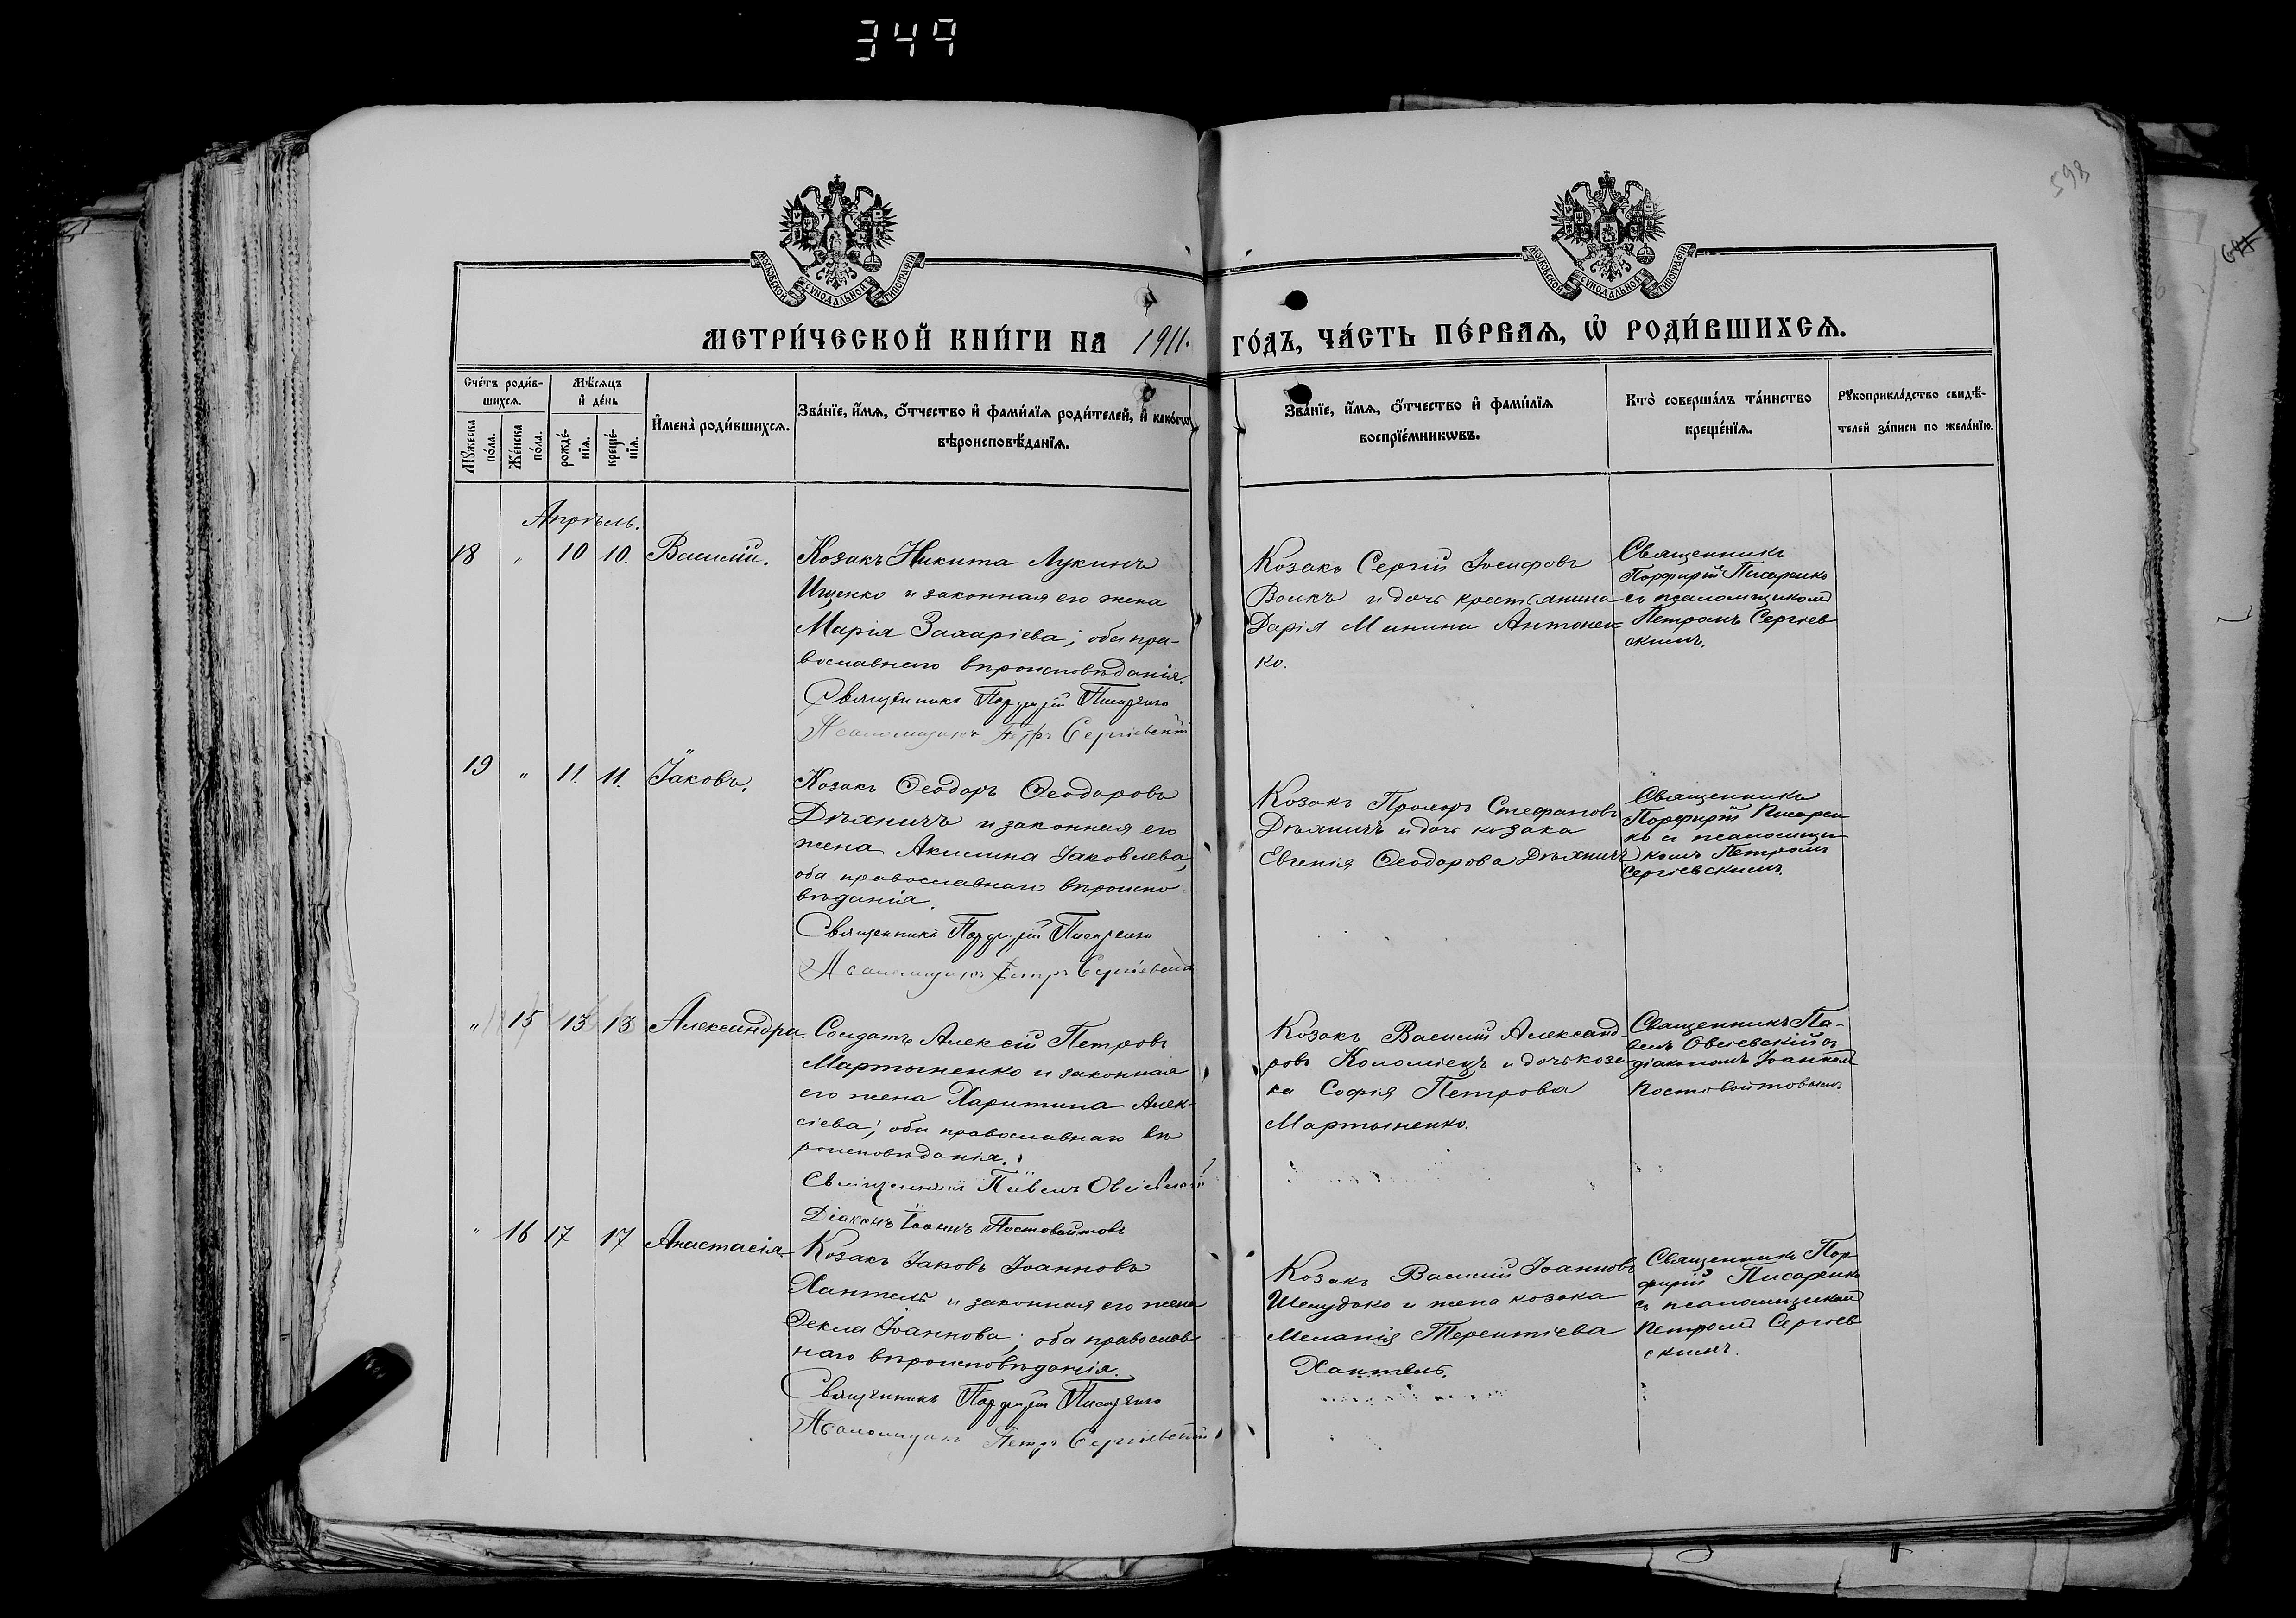 349
598
МОСКОВСКОЙ СѴНОДАЛЬНОЙ ТИПОГРАФІИ
МОСКОВСКОЙ СѴНОДАЛЬНОЙ ТИПОГРАФІИ
МЕТРИ́ЧЕСКОЙ КНИ́ГИ НА 1911. ГО́ДЪ, ЧА́СТЬ ПЕ́РВАѦ, Ѡ҆ РОДИ́ВШИХСѦ.
Сче́тъ роди́в-
шихсѧ.
Мꙋ́жеска
по́ла.
Же́нска
по́ла.
Мѣ́сѧцъ
и҆ де́нь
рожде́-
нїѧ.
креще́-
нїѧ.
И҆мена̀ роди́вшихсѧ.
Зва́нїе, и҆́мѧ, ѻ҆́тчество и҆ фами́лїѧ роди́телей, и҆ како́гѡ
вѣроисповѣ́данїѧ.
Зва́нїе, и҆́мѧ, ѻ҆́тчество и҆ фами́лїѧ
воспрїе́мникѡвъ.
Кто̀ соверша́лъ та́инство
креще́нїѧ.
Рꙋкоприкла́дство свидѣ́-
телей за́писи по жела́нїю.
Апрѣль.
18 " 10 10. Василій.
Козакъ Никита Лукинъ
Ищенко и законная его жена
Марія Захаріева; оба пра-
вославнаго вѣроисповѣданія.
Священникъ Порфирій Писаренко
Псаломщикъ Петръ Сергіевскій
Козакъ Сергій Іосифовъ
Волкъ и дочь крестьянина
Дарія Минина Антонен
ко.
Священникъ
Порфирій Писаренко
съ псаломщикомъ
Петромъ Сергіев
скимъ.
19 " 11. 11. Іаковъ.
Козакъ Ѳеодоръ Ѳеодоровъ
Дѣхничъ и законная его
жена Акилина Іаковлева,
оба православнаго вѣроиспо
вѣданія.
Священникъ Порфирій Писаренко
Псаломщикъ Петръ Сергіевскій
Козакъ Прохоръ Стефановъ
Дѣхничъ и дочь козака
Евгенія Ѳеодорова Дѣхничъ
Священникъ
Порфирій Писарен
ко съ псаломщи
комъ Петромъ
Сергіевскимъ.
" 15 13 13 Александра.
Солдатъ Алексій Петровъ
Мартыненко и законная
его жена Харитина Алек-
сіева; оба православнаго вѣ
роисповѣданія.
Священникъ Павелъ Овсіевскій
Діаконъ Іоаннъ Постовойтовъ
Козакъ Василій Александ
ровъ Коломіецъ и дочь коза
ка Софія Петрова
Мартыненко.
Священникъ Па-
велъ Овсіевскій съ
діакономъ Іоанномъ
Постовойтовымъ.
" 16 17 17 Анастасія.
Козакъ Іаковъ Іоанновъ
Хантель и законная его жена
Ѳекла Іоаннова; оба православ
наго вѣроисповѣданія.
Священникъ Порфирій Писаренко
Псаломщикъ Петръ Сергіевскій
Козакъ Василій Іоанновъ
Шелудько и жена козака
Меланія Терентіева
Хантель.
Священникъ Пор-
фирій Писаренко
съ псаломщикомъ
Петромъ Сергіев
скимъ.